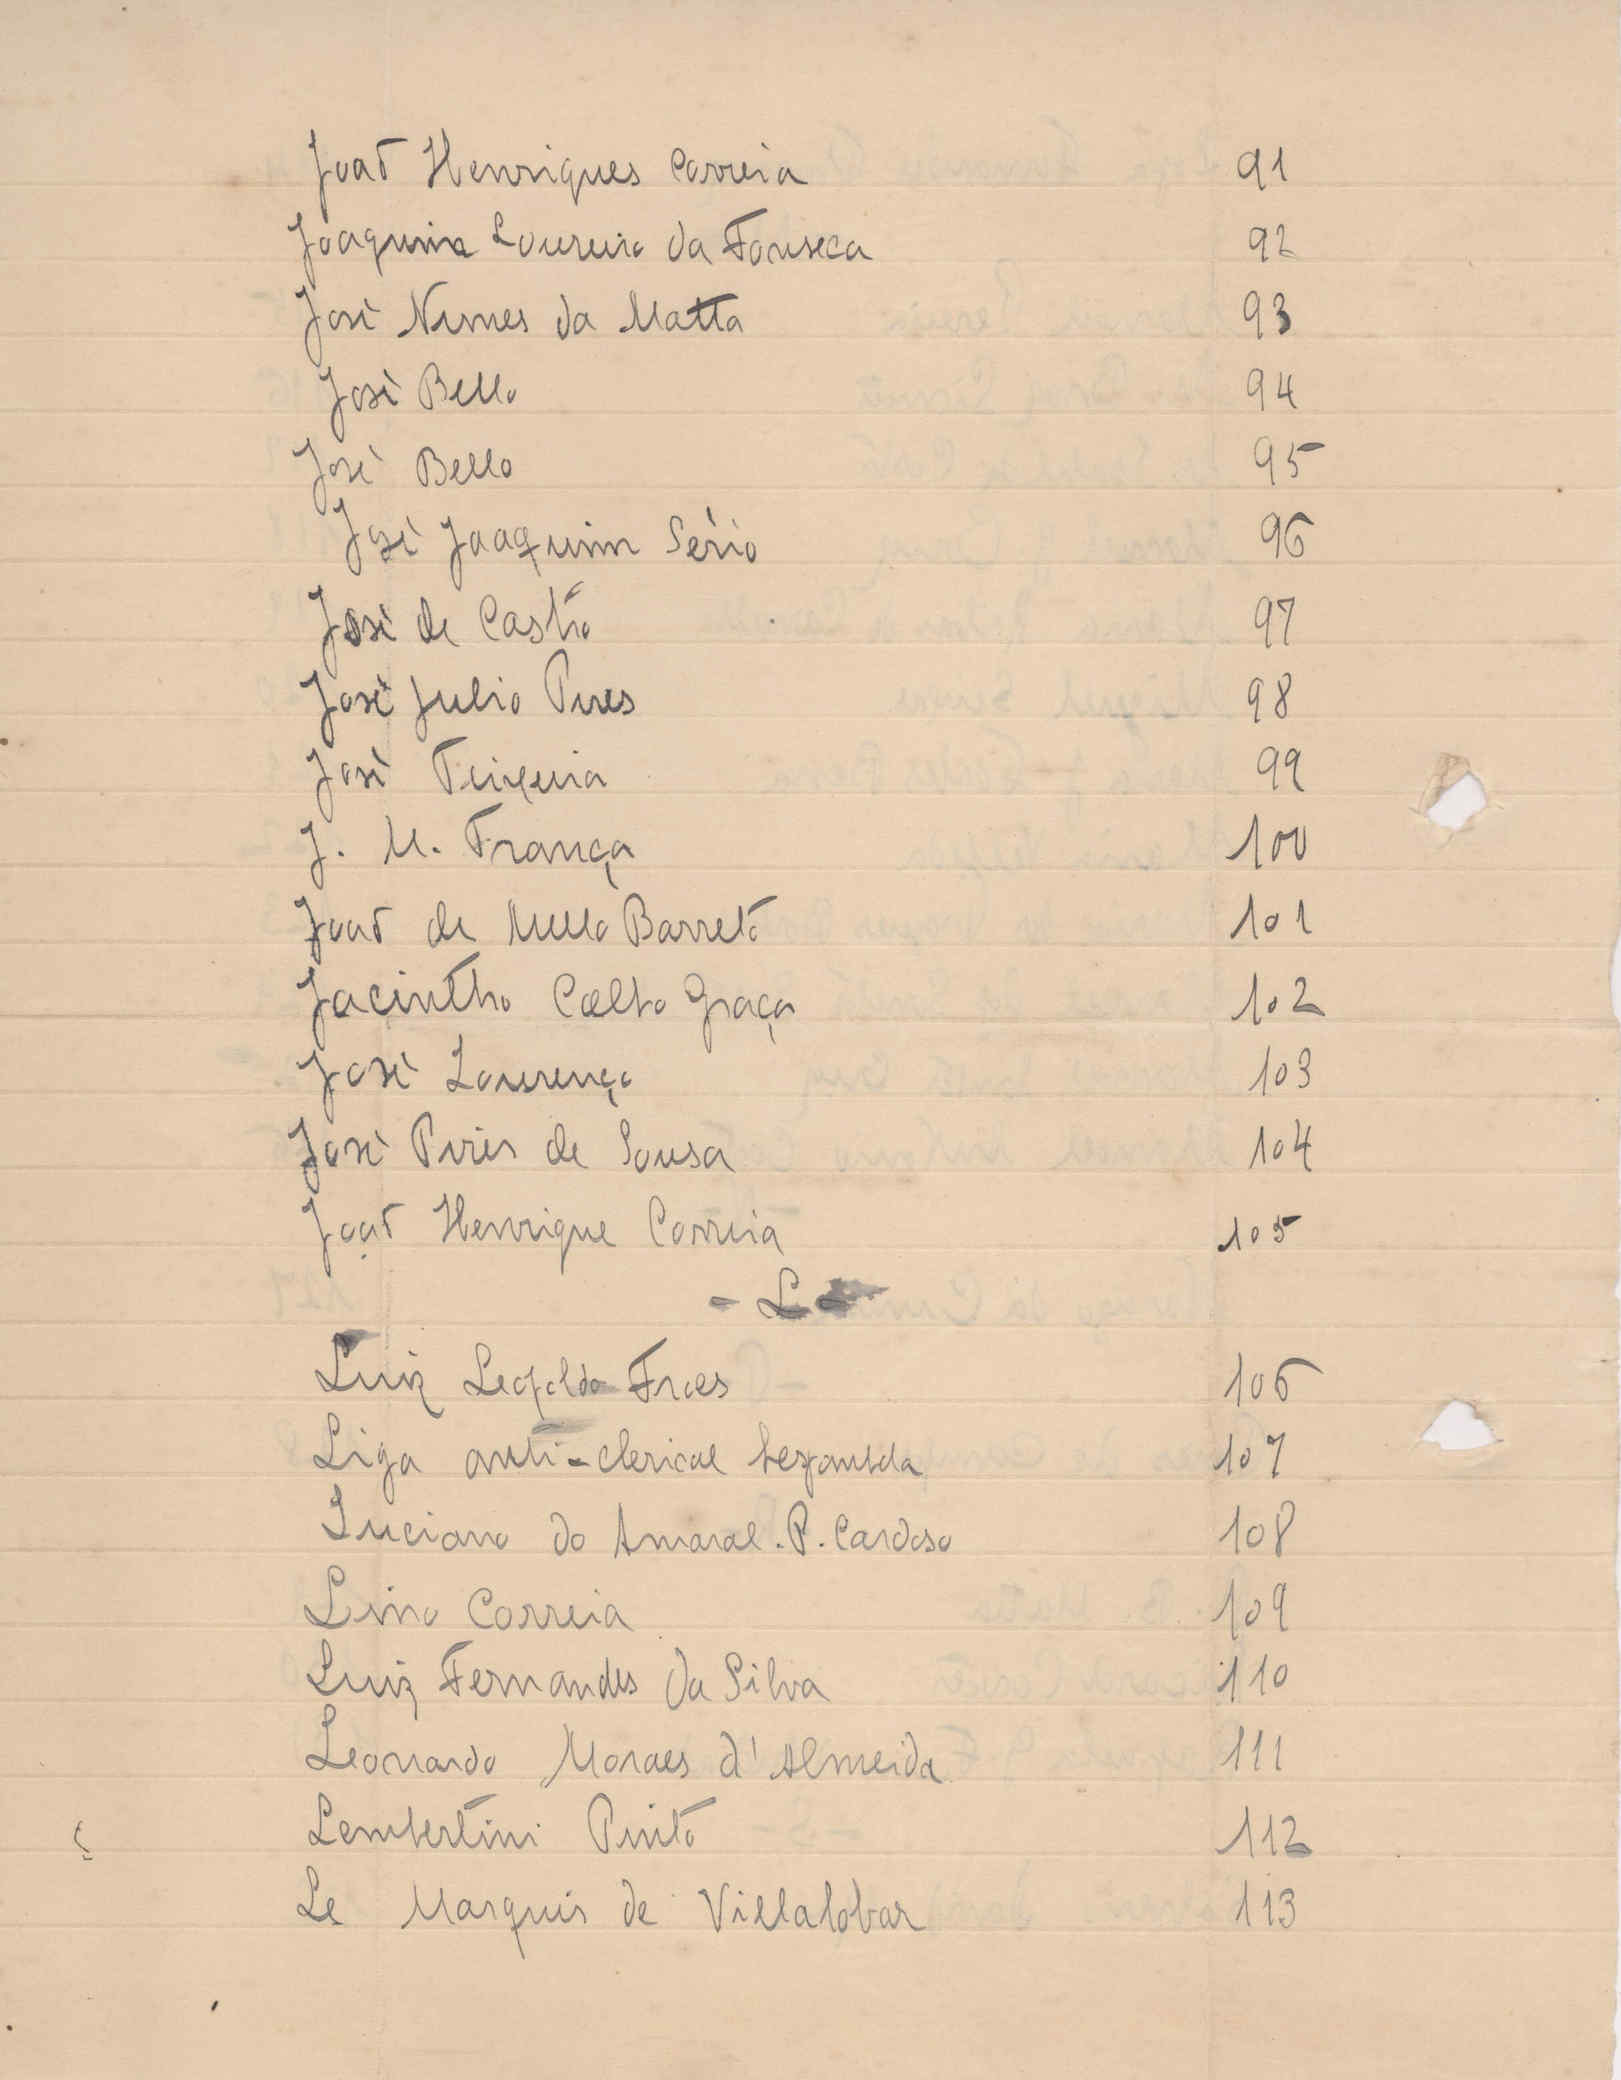 João Henriques Correia 91
Joaquim Loureiro da Fonseca 92
José Nunes da Matta 93
José Bello 94
José Bello 95
José Joaquim Sério 96
José de Castro 97
José Julio Pires 98
José Teixeira 99
J. M. França 100
João de Mello Barreto 101
Jacintho Coelho Graça 102
José Lourenço 103
José Pires de Sousa 104
João Henrique Correia 105
- L -
Luiz Leopoldo Froes 106
Liga anti-clerical 107
Luciano do Amaral. P. Cardoso 108
Lino Correia 109
Luiz Fernandes da Silva 110
Leonardo Moraes d'Almeida 111
Lembertini Pinto 112
Le Marquis de Villalobar 113